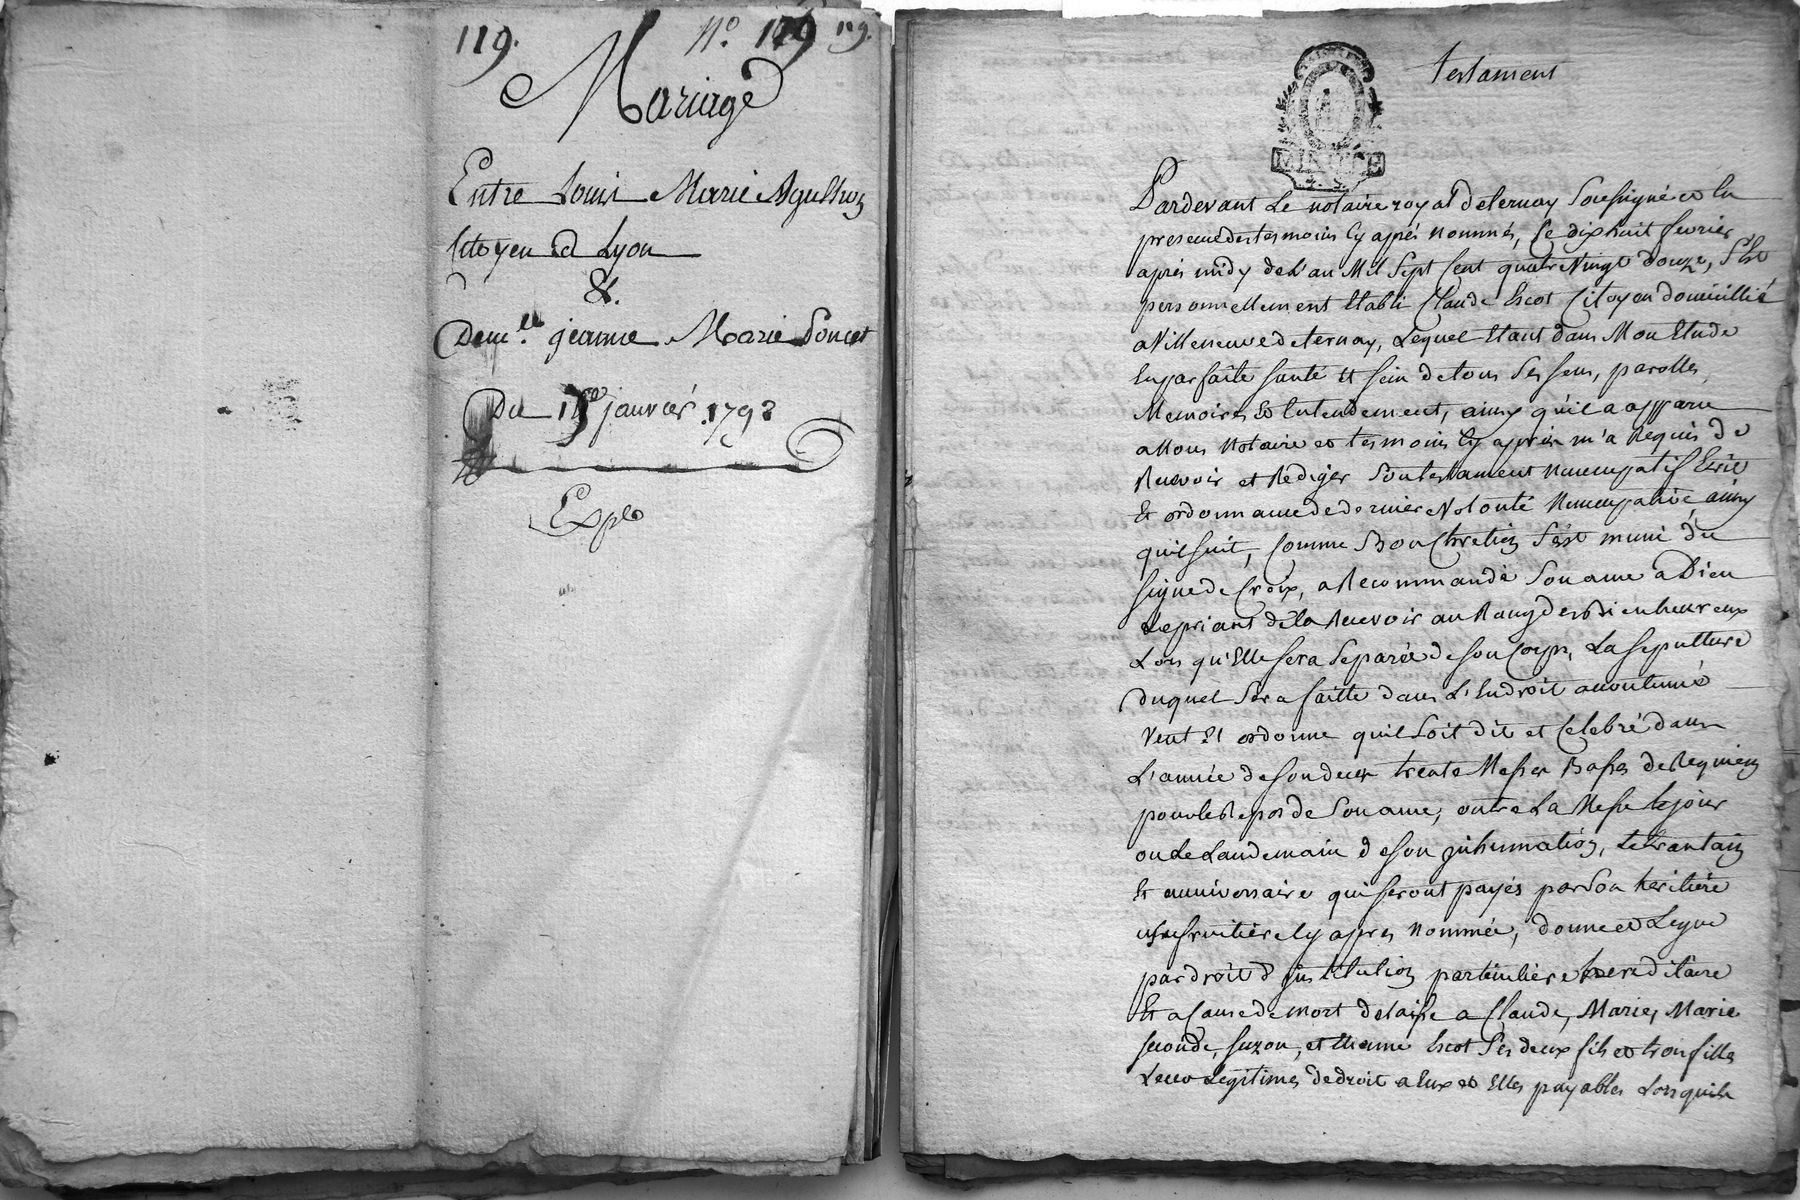 119. N.o 119 119.
Mariage
Entre Louis Marie Agulhon
Citoyen d Lyon
&.
Dem.lle jeanne Marie Poncet
Du janvier 1792
Expé
testament
Pardevant Le notaire royal deternay Soussigné et la
presence des tesmoins Cy aprés nommés, Le dixhuit fevrier
aprés midy de L'an Mil Sept Cent quatre Vingt douze, S'est
personnellement Etabli Claude Escot Citoyen domicillié
a Villeneuve de ternay, Lequel Etant dans Mon Etude
En parfaite santé Et sein de tous Ses sens, parolles,
Memoires Et Entendement, ainsy qu'il a apparu
a Nous Notaire et tesmoins Cy aprés m'a Requis de
Recevoir et Rediger Son testament Nuncupatif Ecrit
Et ordonnance de derniere Volonté Nuncupative, ainsy
qu'il suit, Comme Bon Chretien S'est muni du
signe de Croix, a Recommandé Son ame a Dieu
Le priant de la Recevoir au Rang des Bienheureux
Lors qu'Elle sera Separée de son Corps, La sepulture
duquel Sera faitte dans L'Endroit accoutumé
Veut Et ordonne qu'il Soit dit et Celebré dans
L'année de son deces trente Messes Basses de Requiem
pour le Repos de Son ame, outre La Messe le jour
ou Le Landemain de son inhumation, Le trantain
Et anniversaire qui seront payés par Son heritiere
usufruitiere Cy apres Nommée, donne et Legue
par droit d'institution particuliere hereditaire
Et a Cause de mort delaisse a Claude, Marie, Marie
seconde, suzon, et Etienne Escot Ses deux fils et trois filles
Leurs Legitimes de droit a Eux et Elles payables Lors quils